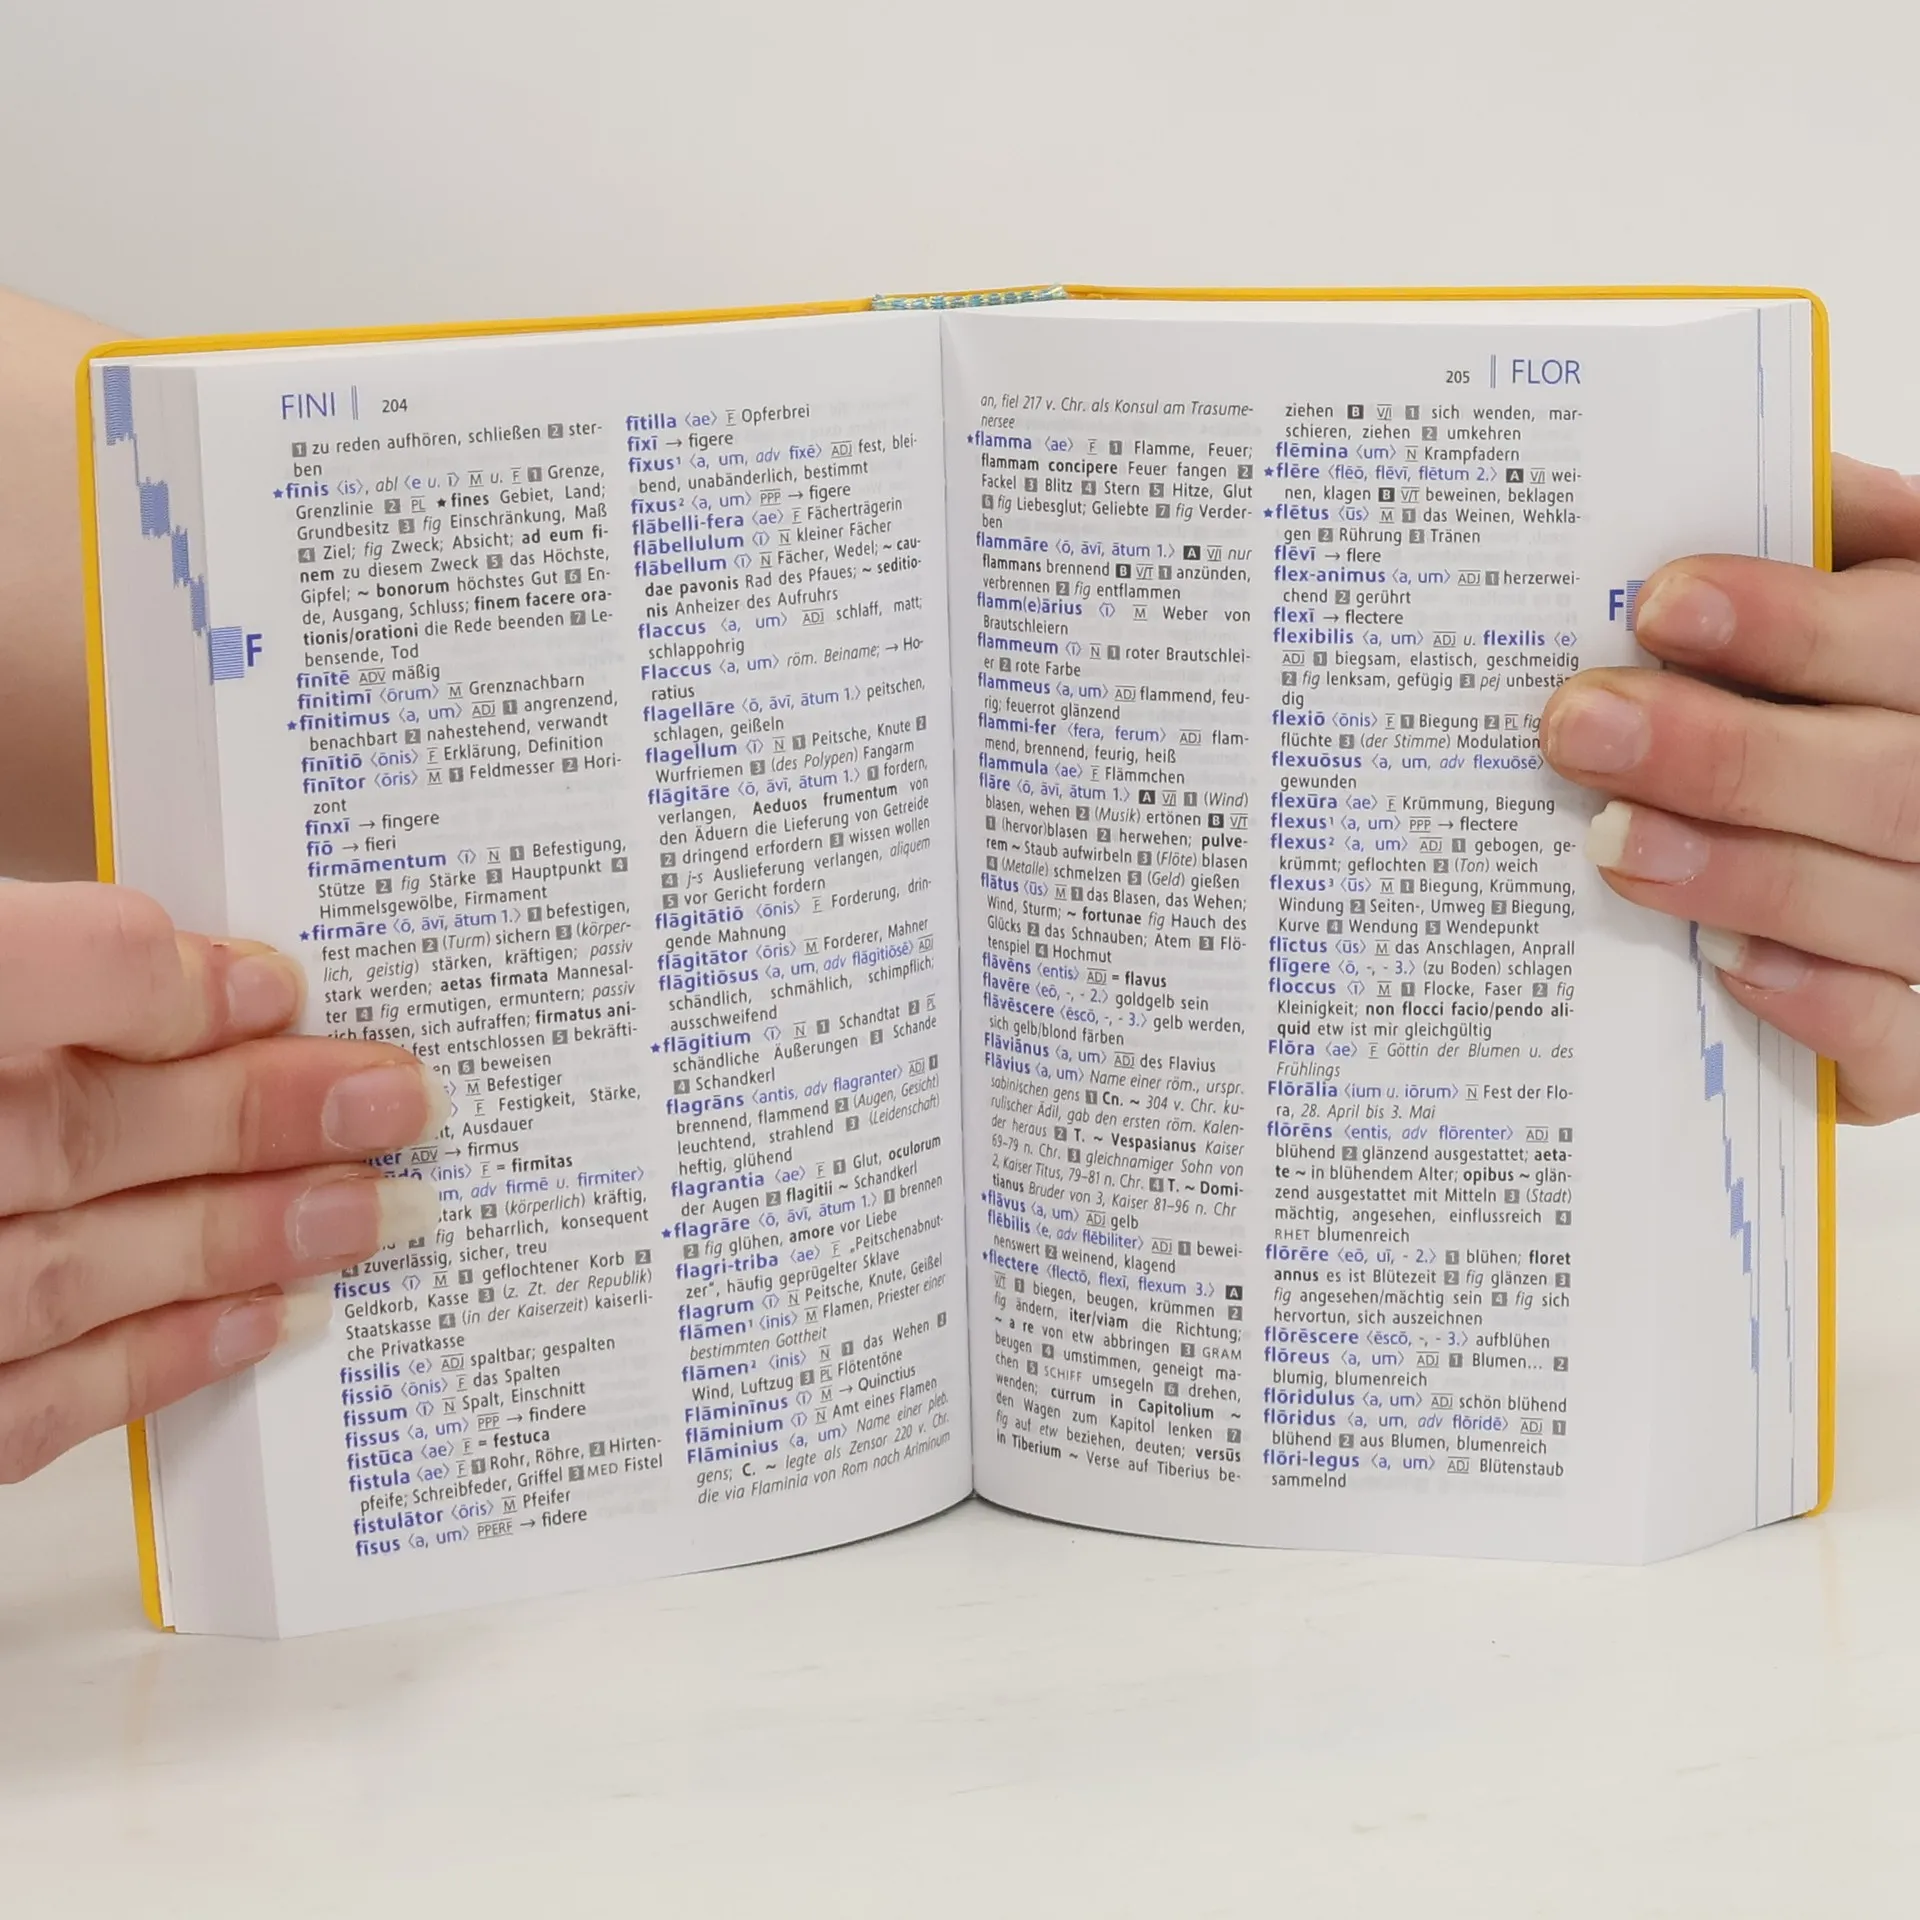 FINI 204
1 zu reden aufhören, schließen 2 ster-
ben
★fīnis ⟨is⟩, abl ⟨e u. ī⟩ M u. F 1 Grenze,
Grenzlinie 2 PL ★fines Gebiet, Land;
Grundbesitz 3 fig Einschränkung, Maß
4 Ziel; fig Zweck; Absicht; ad eum fi-
nem zu diesem Zweck 5 das Höchste,
Gipfel; ~ bonorum höchstes Gut 6 En-
de, Ausgang, Schluss; finem facere ora-
tionis/orationi die Rede beenden 7 Le-
bensende, Tod
fīnītē ADV mäßig
fīnitimī ⟨ōrum⟩ M Grenznachbarn
★fīnitimus ⟨a, um⟩ ADJ 1 angrenzend,
benachbart 2 nahestehend, verwandt
fīnītiō ⟨ōnis⟩ F Erklärung, Definition
fīnītor ⟨ōris⟩ M 1 Feldmesser 2 Hori-
zont
fīnxī → fingere
fīō → fieri
firmāmentum ⟨ī⟩ N 1 Befestigung,
Stütze 2 fig Stärke 3 Hauptpunkt 4
Himmelsgewölbe, Firmament
★firmāre ⟨ō, āvī, ātum 1.⟩ 1 befestigen,
fest machen 2 (Turm) sichern 3 (körper-
lich, geistig) stärken, kräftigen; passiv
stark werden; aetas firmata Mannesal-
ter 4 fig ermutigen, ermuntern; passiv
sich fassen, sich aufraffen; firmatus ani-
fest entschlossen 5 bekräfti-
en 6 beweisen
M Befestiger
F Festigkeit, Stärke,
Ausdauer
ADV → firmus
⟨inis⟩ F = firmitas
um, adv firmē u. firmiter⟩
2 (körperlich) kräftig,
3 fig beharrlich, konsequent
4 zuverlässig, sicher, treu
fiscus ⟨ī⟩ M 1 geflochtener Korb 2
Geldkorb, Kasse 3 (z. Zt. der Republik)
Staatskasse 4 (in der Kaiserzeit) kaiserli-
che Privatkasse
fissilis ⟨e⟩ ADJ spaltbar; gespalten
fissiō ⟨ōnis⟩ F das Spalten
fissum ⟨ī⟩ N Spalt, Einschnitt
fissus ⟨a, um⟩ PPP → findere
fistūca ⟨ae⟩ F = festuca
fistula ⟨ae⟩ F 1 Rohr, Röhre, 2 Hirten-
pfeife; Schreibfeder, Griffel 3 MED Fistel
fistulātor ⟨ōris⟩ M Pfeifer
fīsus ⟨a, um⟩ PPERF → fidere
F
fītilla ⟨ae⟩ F Opferbrei
fīxī → figere
fīxus¹ ⟨a, um, adv fixē⟩ ADJ fest, blei-
bend, unabänderlich, bestimmt
fīxus² ⟨a, um⟩ PPP → figere
flābelli-fera ⟨ae⟩ F Fächerträgerin
flābellulum ⟨ī⟩ N kleiner Fächer
flābellum ⟨ī⟩ N Fächer, Wedel; ~ cau-
dae pavonis Rad des Pfaues; ~ seditio-
nis Anheizer des Aufruhrs
flaccus ⟨a, um⟩ ADJ schlaff, matt;
schlappohrig
Flaccus ⟨a, um⟩ röm. Beiname; → Ho-
ratius
flagellāre ⟨ō, āvī, ātum 1.⟩ peitschen,
schlagen, geißeln
flagellum ⟨ī⟩ N 1 Peitsche, Knute 2
Wurfriemen 3 (des Polypen) Fangarm
flāgitāre ⟨ō, āvī, ātum 1.⟩ 1 fordern,
verlangen, Aeduos frumentum von
den Äduern die Lieferung von Getreide
2 dringend erfordern 3 wissen wollen
4 j-s Auslieferung verlangen, aliquem
5 vor Gericht fordern
flāgitātiō ⟨ōnis⟩ F Forderung, drin-
gende Mahnung
flāgitātor ⟨ōris⟩ M Forderer, Mahner
flāgitiōsus ⟨a, um, adv flāgitiōsē⟩ ADJ
schändlich, schmählich, schimpflich;
ausschweifend
★flāgitium ⟨ī⟩ N 1 Schandtat 2 PL
schändliche Äußerungen 3 Schande
4 Schandkerl
flagrāns ⟨antis, adv flagranter⟩ ADJ 1
brennend, flammend 2 (Augen, Gesicht)
leuchtend, strahlend 3 (Leidenschaft)
heftig, glühend
flagrantia ⟨ae⟩ F 1 Glut, oculorum
der Augen 2 flagitii ~ Schandkerl
★flagrāre ⟨ō, āvī, ātum 1.⟩ 1 brennen
2 fig glühen, amore vor Liebe
flagri-triba ⟨ae⟩ F „Peitschenabnut-
zer“, häufig geprügelter Sklave
flagrum ⟨ī⟩ N Peitsche, Knute, Geißel
flāmen¹ ⟨inis⟩ M Flamen, Priester einer
bestimmten Gottheit
flāmen² ⟨inis⟩ N 1 das Wehen 2
Wind, Luftzug 3 PL Flötentöne
Flāminīnus ⟨ī⟩ M → Quinctius
flāminium ⟨ī⟩ N Amt eines Flamen
Flāminius ⟨a, um⟩ Name einer pleb.
gens; C. ~ legte als Zensor 220 v. Chr.
die via Flaminia von Rom nach Ariminum
205 FLOR
an, fiel 217 v. Chr. als Konsul am Trasume-
nersee
★flamma ⟨ae⟩ F 1 Flamme, Feuer;
flammam concipere Feuer fangen 2
Fackel 3 Blitz 4 Stern 5 Hitze, Glut
6 fig Liebesglut; Geliebte 7 fig Verder-
ben
flammāre ⟨ō, āvī, ātum 1.⟩ A V/I nur
flammans brennend B V/T 1 anzünden,
verbrennen 2 fig entflammen
flamm(e)ārius ⟨ī⟩ M Weber von
Brautschleiern
flammeum ⟨ī⟩ N 1 roter Brautschlei-
er 2 rote Farbe
flammeus ⟨a, um⟩ ADJ flammend, feu-
rig; feuerrot glänzend
flammi-fer ⟨fera, ferum⟩ ADJ flam-
mend, brennend, feurig, heiß
flammula ⟨ae⟩ F Flämmchen
flāre ⟨ō, āvī, ātum 1.⟩ A V/I 1 (Wind)
blasen, wehen 2 (Musik) ertönen B V/T
1 (hervor)blasen 2 herwehen; pulve-
rem ~ Staub aufwirbeln 3 (Flöte) blasen
4 (Metalle) schmelzen 5 (Geld) gießen
flātus ⟨ūs⟩ M 1 das Blasen, das Wehen;
Wind, Sturm; ~ fortunae fig Hauch des
Glücks 2 das Schnauben; Atem 3 Flö-
tenspiel 4 Hochmut
flāvēns ⟨entis⟩ ADJ = flavus
flavēre ⟨eō, -, - 2.⟩ goldgelb sein
flāvēscere ⟨ēscō, -, - 3.⟩ gelb werden,
sich gelb/blond färben
Flāviānus ⟨a, um⟩ ADJ des Flavius
Flāvius ⟨a, um⟩ Name einer röm., urspr.
sabinischen gens 1 Cn. ~ 304 v. Chr. ku-
rulischer Ädil, gab den ersten röm. Kalen-
der heraus 2 T. ~ Vespasianus Kaiser
69–79 n. Chr. 3 gleichnamiger Sohn von
2, Kaiser Titus, 79–81 n. Chr. 4 T. ~ Domi-
tianus Bruder von 3, Kaiser 81–96 n. Chr
★flāvus ⟨a, um⟩ ADJ gelb
flēbilis ⟨e, adv flēbiliter⟩ ADJ 1 bewei-
nenswert 2 weinend, klagend
★flectere ⟨flectō, flexī, flexum 3.⟩ A
V/T 1 biegen, beugen, krümmen 2
fig ändern, iter/viam die Richtung;
~ a re von etw abbringen 3 GRAM
beugen 4 umstimmen, geneigt ma-
chen 5 SCHIFF umsegeln 6 drehen,
wenden; currum in Capitolium ~
den Wagen zum Kapitol lenken 7
fig auf etw beziehen, deuten; versūs
in Tiberium ~ Verse auf Tiberius be-
ziehen B V/I 1 sich wenden, mar-
schieren, ziehen 2 umkehren
flēmina ⟨um⟩ N Krampfadern
★flēre ⟨flēō, flēvī, flētum 2.⟩ A V/I wei-
nen, klagen B V/T beweinen, beklagen
★flētus ⟨ūs⟩ M 1 das Weinen, Wehkla-
gen 2 Rührung 3 Tränen
flēvī → flere
flex-animus ⟨a, um⟩ ADJ 1 herzerwei-
chend 2 gerührt
flexī → flectere
flexibilis ⟨a, um⟩ ADJ u. flexilis ⟨e⟩
ADJ 1 biegsam, elastisch, geschmeidig
2 fig lenksam, gefügig 3 pej unbestän
dig
flexiō ⟨ōnis⟩ F 1 Biegung 2 PL fig
flüchte 3 (der Stimme) Modulation
flexuōsus ⟨a, um, adv flexuōsē⟩
gewunden
flexūra ⟨ae⟩ F Krümmung, Biegung
flexus¹ ⟨a, um⟩ PPP → flectere
flexus² ⟨a, um⟩ ADJ 1 gebogen, ge-
krümmt; geflochten 2 (Ton) weich
flexus³ ⟨ūs⟩ M 1 Biegung, Krümmung,
Windung 2 Seiten-, Umweg 3 Biegung,
Kurve 4 Wendung 5 Wendepunkt
flīctus ⟨ūs⟩ M das Anschlagen, Anprall
flīgere ⟨ō, -, - 3.⟩ (zu Boden) schlagen
floccus ⟨ī⟩ M 1 Flocke, Faser 2 fig
Kleinigkeit; non flocci facio/pendo ali-
quid etw ist mir gleichgültig
Flōra ⟨ae⟩ F Göttin der Blumen u. des
Frühlings
Flōrālia ⟨ium u. iōrum⟩ N Fest der Flo-
ra, 28. April bis 3. Mai
flōrēns ⟨entis, adv flōrenter⟩ ADJ 1
blühend 2 glänzend ausgestattet; aeta-
te ~ in blühendem Alter; opibus ~ glän-
zend ausgestattet mit Mitteln 3 (Stadt)
mächtig, angesehen, einflussreich 4
RHET blumenreich
flōrēre ⟨eō, uī, - 2.⟩ 1 blühen; floret
annus es ist Blütezeit 2 fig glänzen 3
fig angesehen/mächtig sein 4 fig sich
hervortun, sich auszeichnen
flōrēscere ⟨ēscō, -, - 3.⟩ aufblühen
flōreus ⟨a, um⟩ ADJ 1 Blumen... 2
blumig, blumenreich
flōridulus ⟨a, um⟩ ADJ schön blühend
flōridus ⟨a, um, adv flōridē⟩ ADJ 1
blühend 2 aus Blumen, blumenreich
flōri-legus ⟨a, um⟩ ADJ Blütenstaub
sammelnd
F